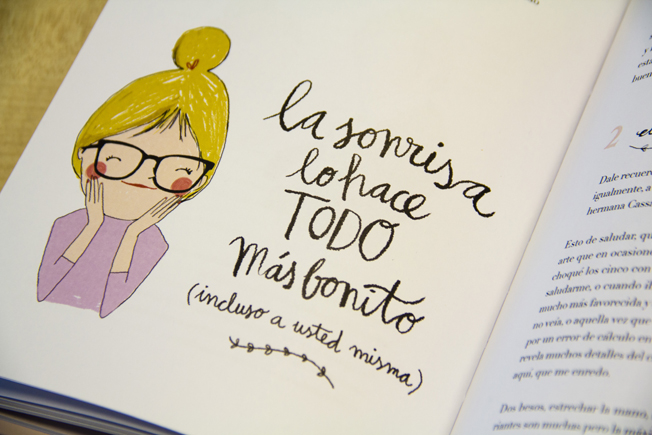 la sonrisa
lo hace
TODO
más bonito
(incluso a usted misma)
2
Dale recuer
igualmente, a
hermana Cassa
Esto de saludar, qu
arte que en ocasion
choqué los cinco con
saludarme, o cuando
mucho más favorecida y
no veía, o aquella vez que
por un error de cálculo en
revela muchos detalles del c
aquí, que me enredo.
Dos besos, estrechar la mano,